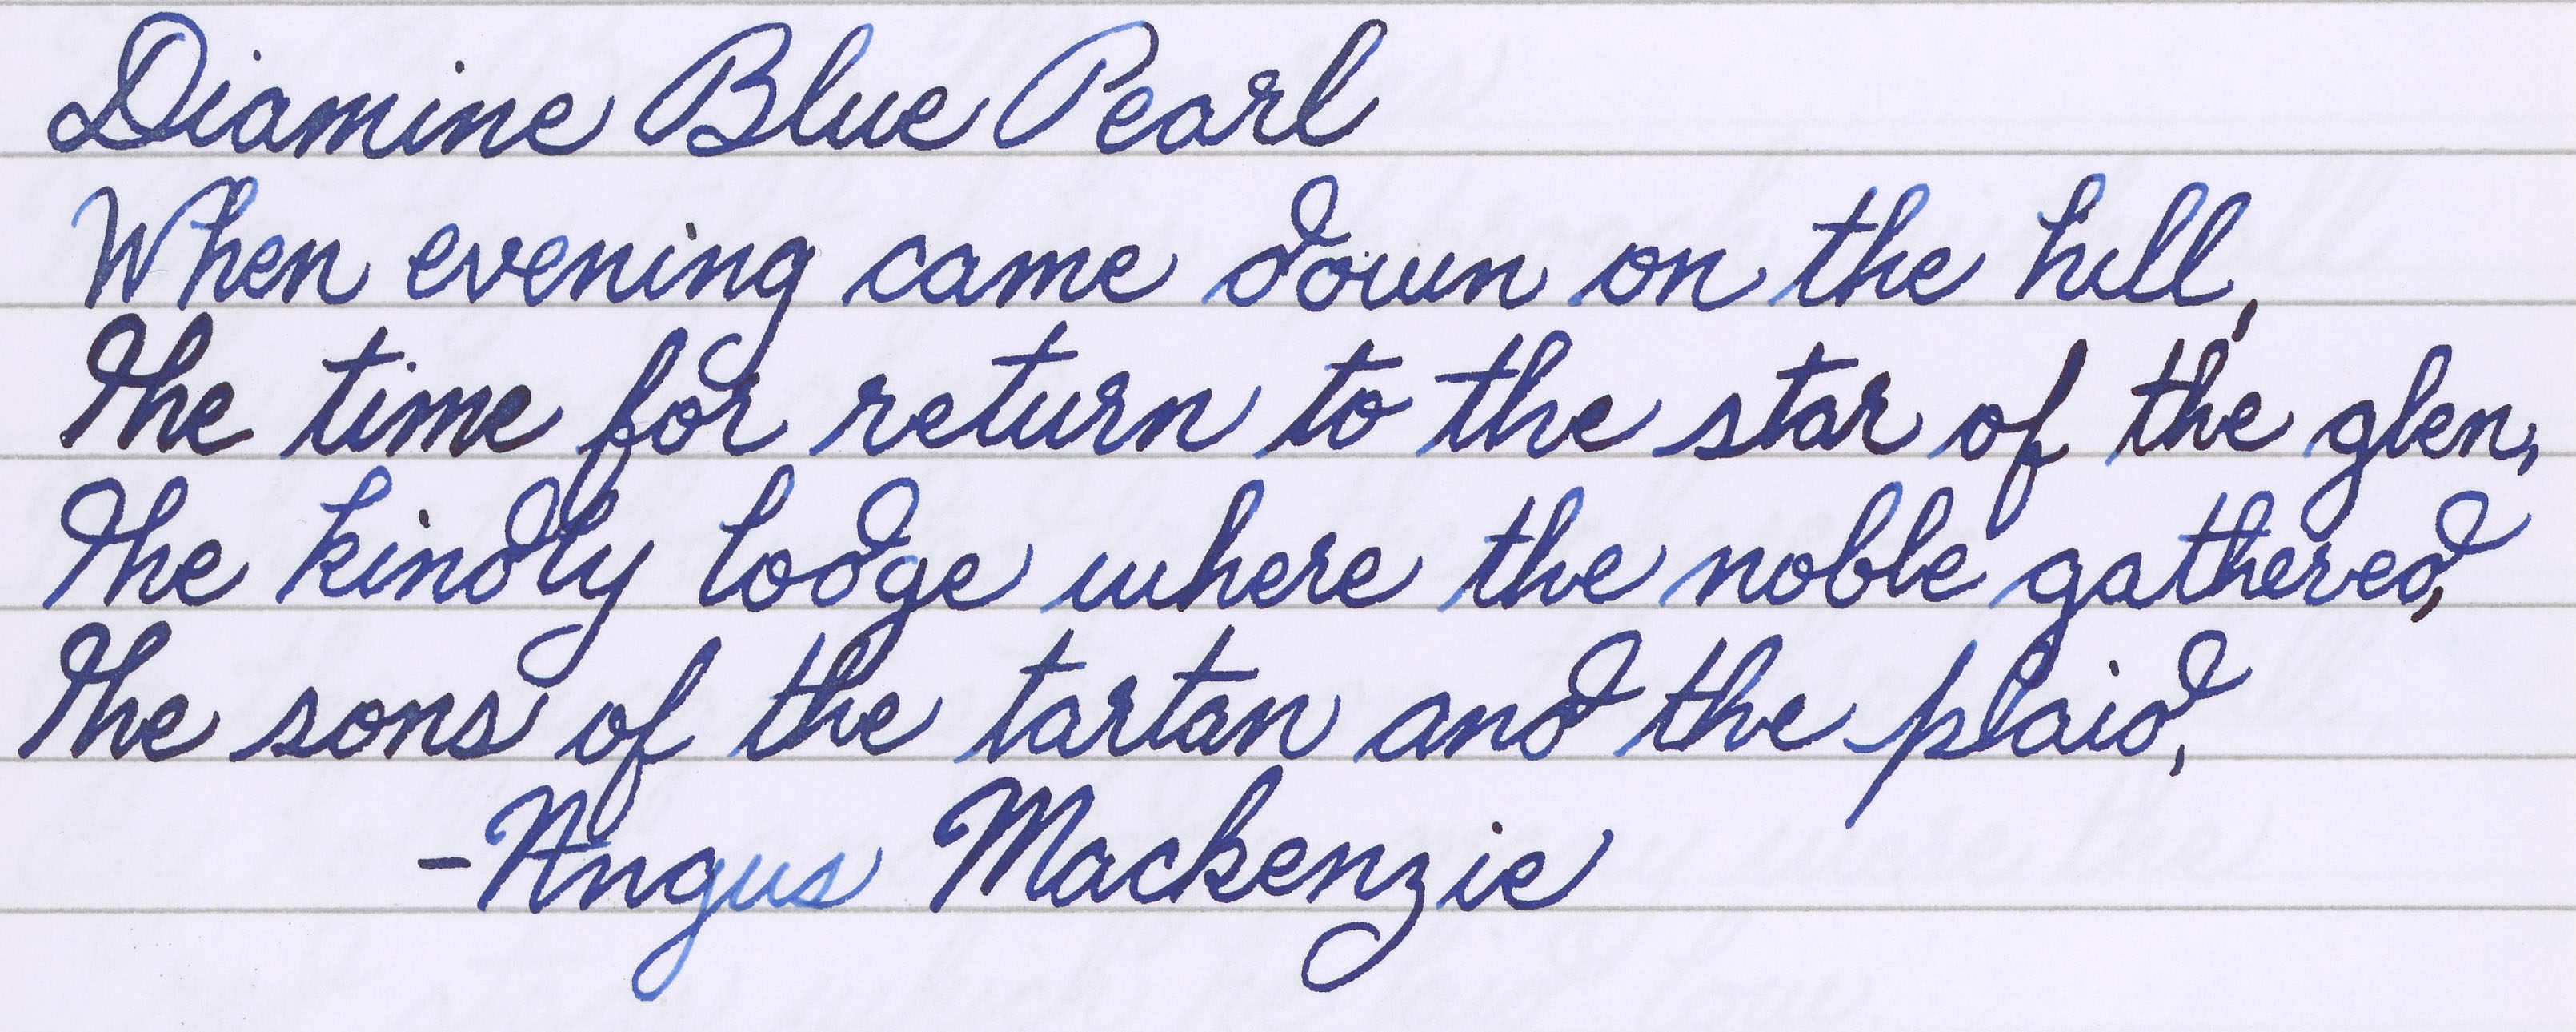 Diamine Blue Pearl
When evening came down on the hill,
The time for return to the star of the glen,
The kindly lodge where the noble gathered,
The sons of the tartan and the plaid,
-Angus Mackenzie